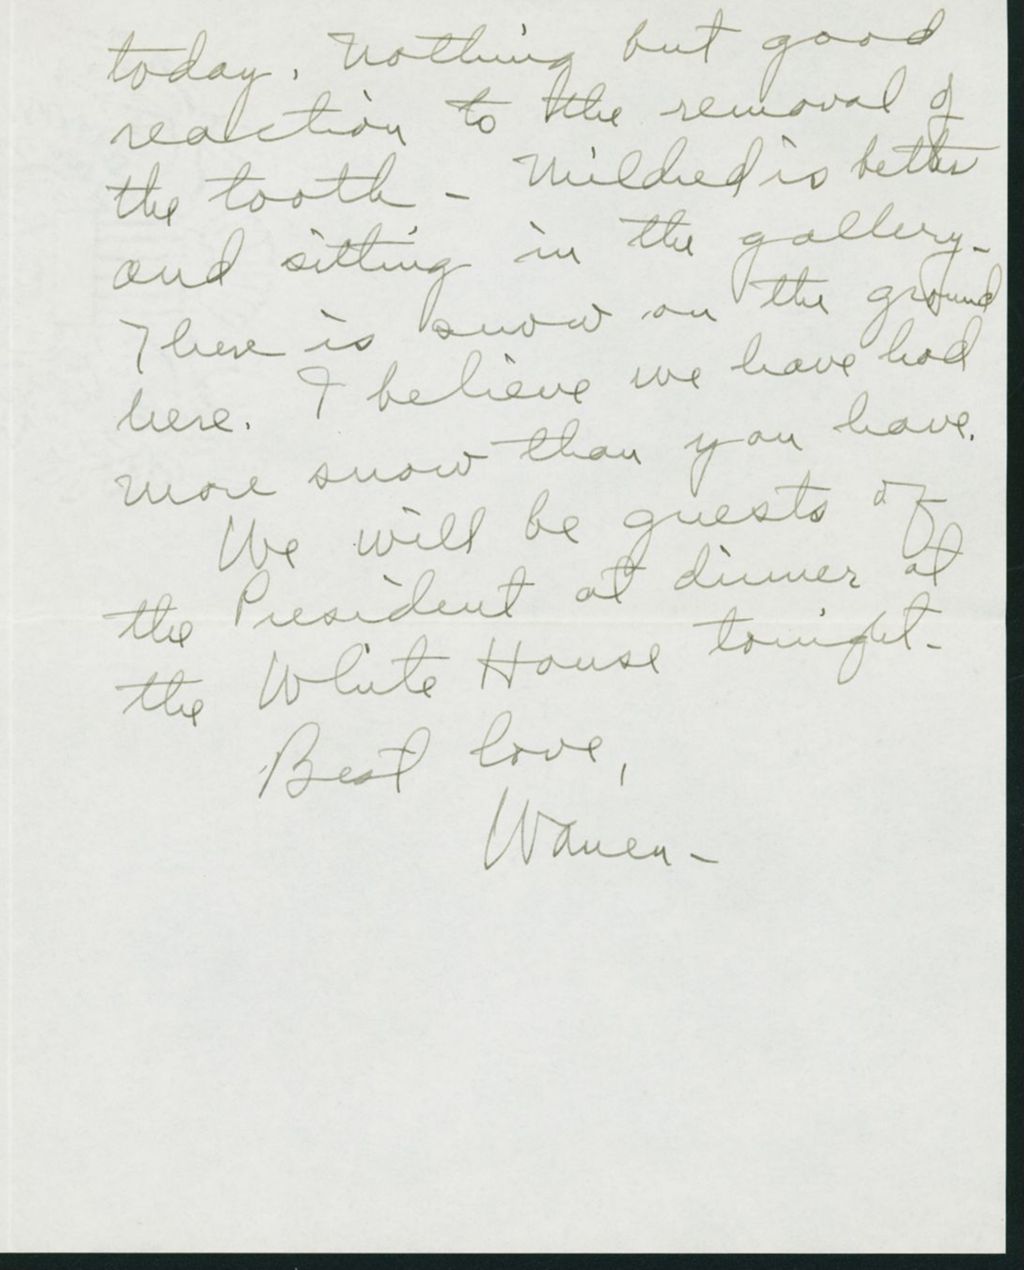 today. Nothing but good
reaction to the removal of
the tooth - Mildred is better
and sitting in the gallery -
There is snow on the ground
here. I believe we have had
more snow than you have.
We will be guests of
the President at dinner at
the White House tonight -
Best love,
Warren -